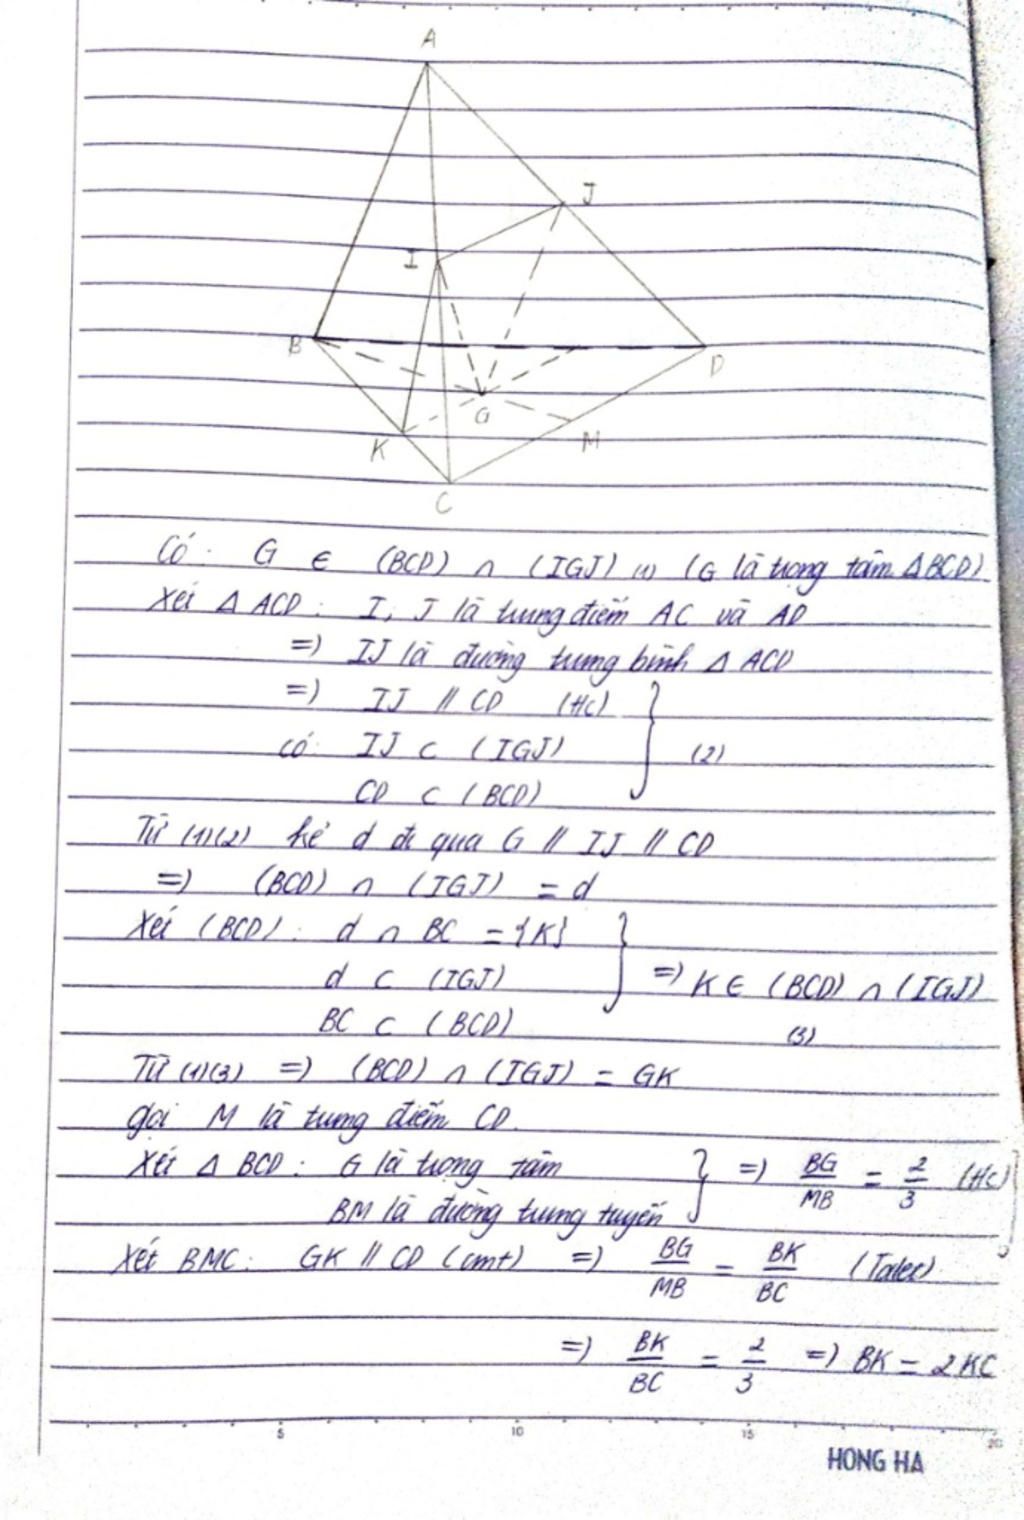 A
J
I
B
D
G
K
M
C
Có: G ∈ (BCD) ∩ (IGJ) (1) (G là trọng tâm ΔBCD)
Xét Δ ACD: I, J là trung điểm AC và AD
=) IJ là đường trung bình Δ ACD
=) IJ // CD (t/c)
có: IJ ⊂ (IGJ) (2)
CD ⊂ (BCD)
Từ (1)(2) kẻ d đi qua G // IJ // CD
=) (BCD) ∩ (IGJ) = d
Xét (BCD): d ∩ BC = {K}
d ⊂ (IGJ) =) K ∈ (BCD) ∩ (IGJ)
BC ⊂ (BCD) (3)
Từ (1)(3) =) (BCD) ∩ (IGJ) = GK
gọi M là trung điểm CD.
Xét Δ BCD: G là trọng tâm =) BG/MB = 2/3 (t/c)
BM là đường trung tuyến
Xét BMC: GK // CD (cmt) =) BG/MB = BK/BC (Talec)
=) BK/BC = 2/3 =) BK = 2KC
5 10 15 20
HONG HA